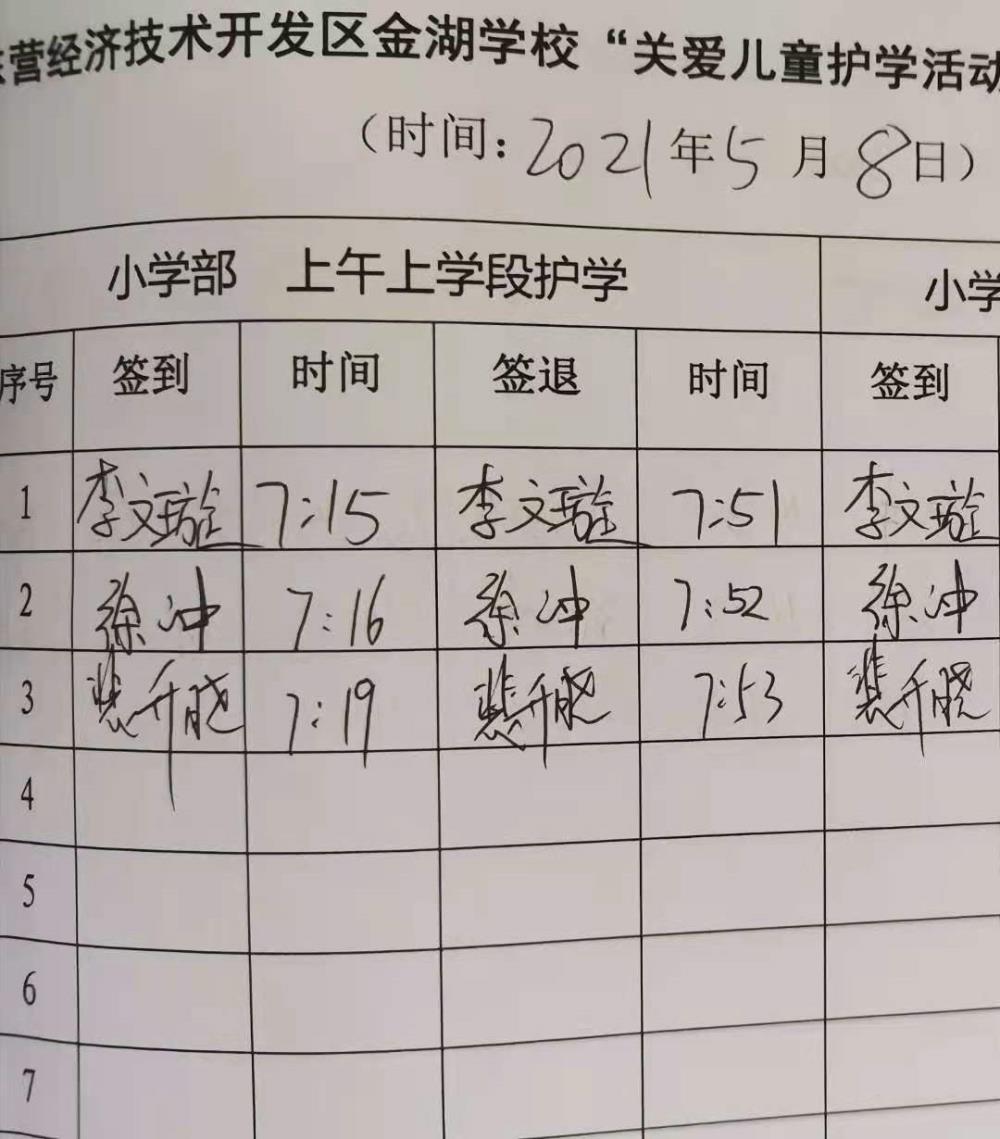 营经济技术开发区金湖学校“关爱儿童护学活动
（时间：2021年5月8日）
小学部 上午上学段护学 小学
序号 签到 时间 签退 时间 签到
1 李文璇 7:15 李文璇 7:51 李文璇
2 徐冲 7:16 徐冲 7:52 徐冲
3 裴升晓 7:19 裴升晓 7:53 裴升晓
4
5
6
7